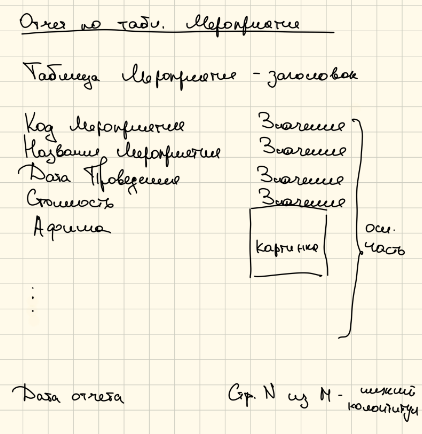 Отчет по табл. Мероприятие
Таблица Мероприятие - заголовок
Код Мероприятия Значение
Название Мероприятия Значение
Дата Проведения Значение
Стоимость Значение
Афиша
картинка
осн.
часть
Дата отчета Стр. N из M - нижний
колонтитул